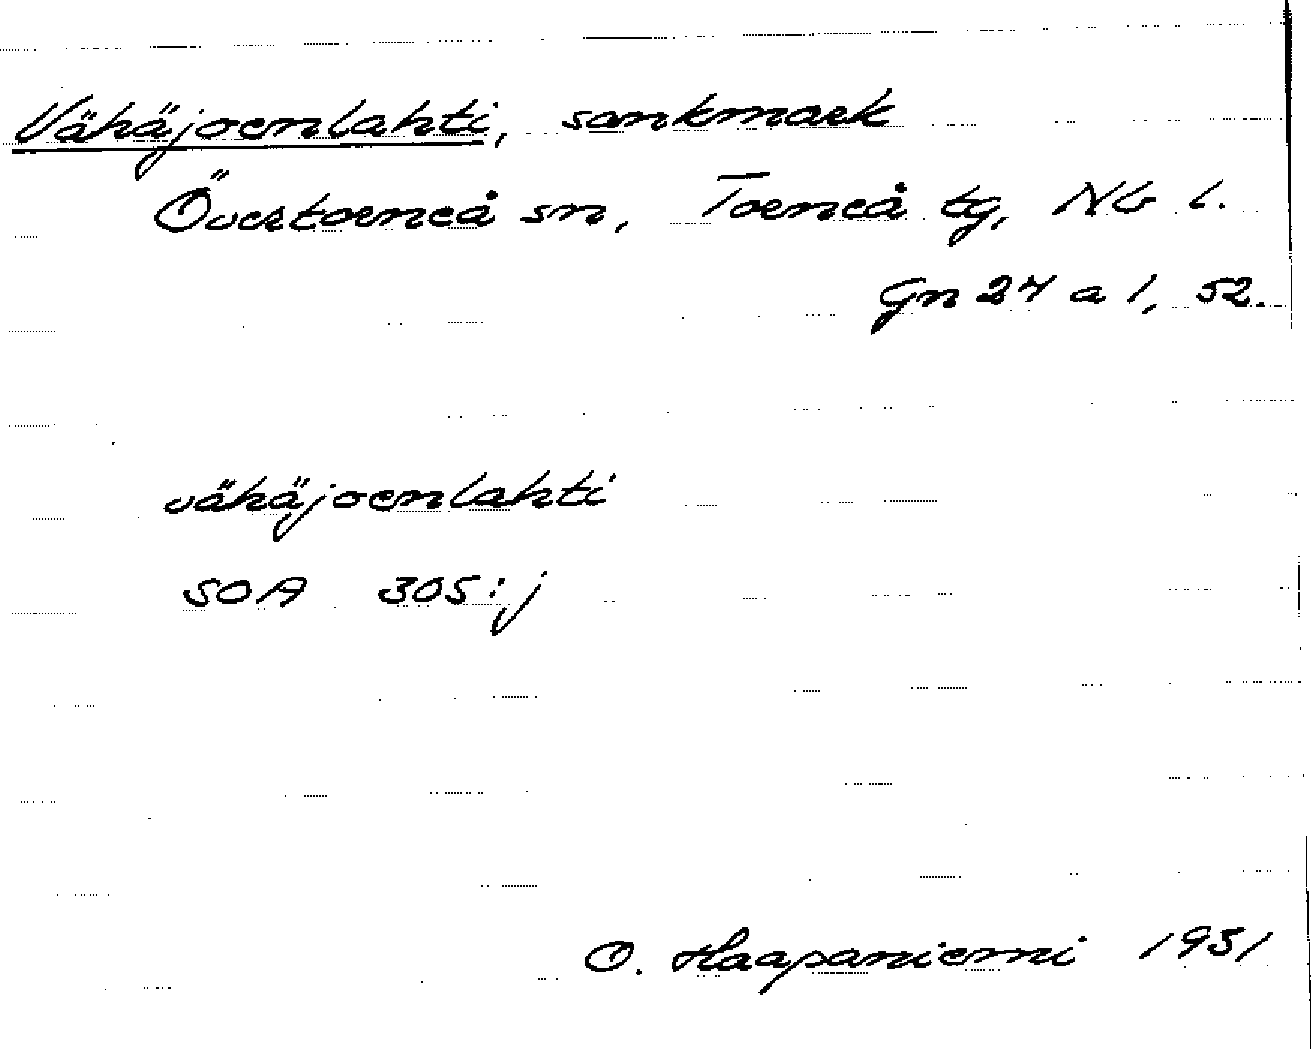 Vähäjoenlahti, sankmark
Övertorneå sn, Torneå tg, Nb l.
Gn 24 a 1, 52.
vähäjoenlahti
SOA 305:j
O. Haapaniemi 1931